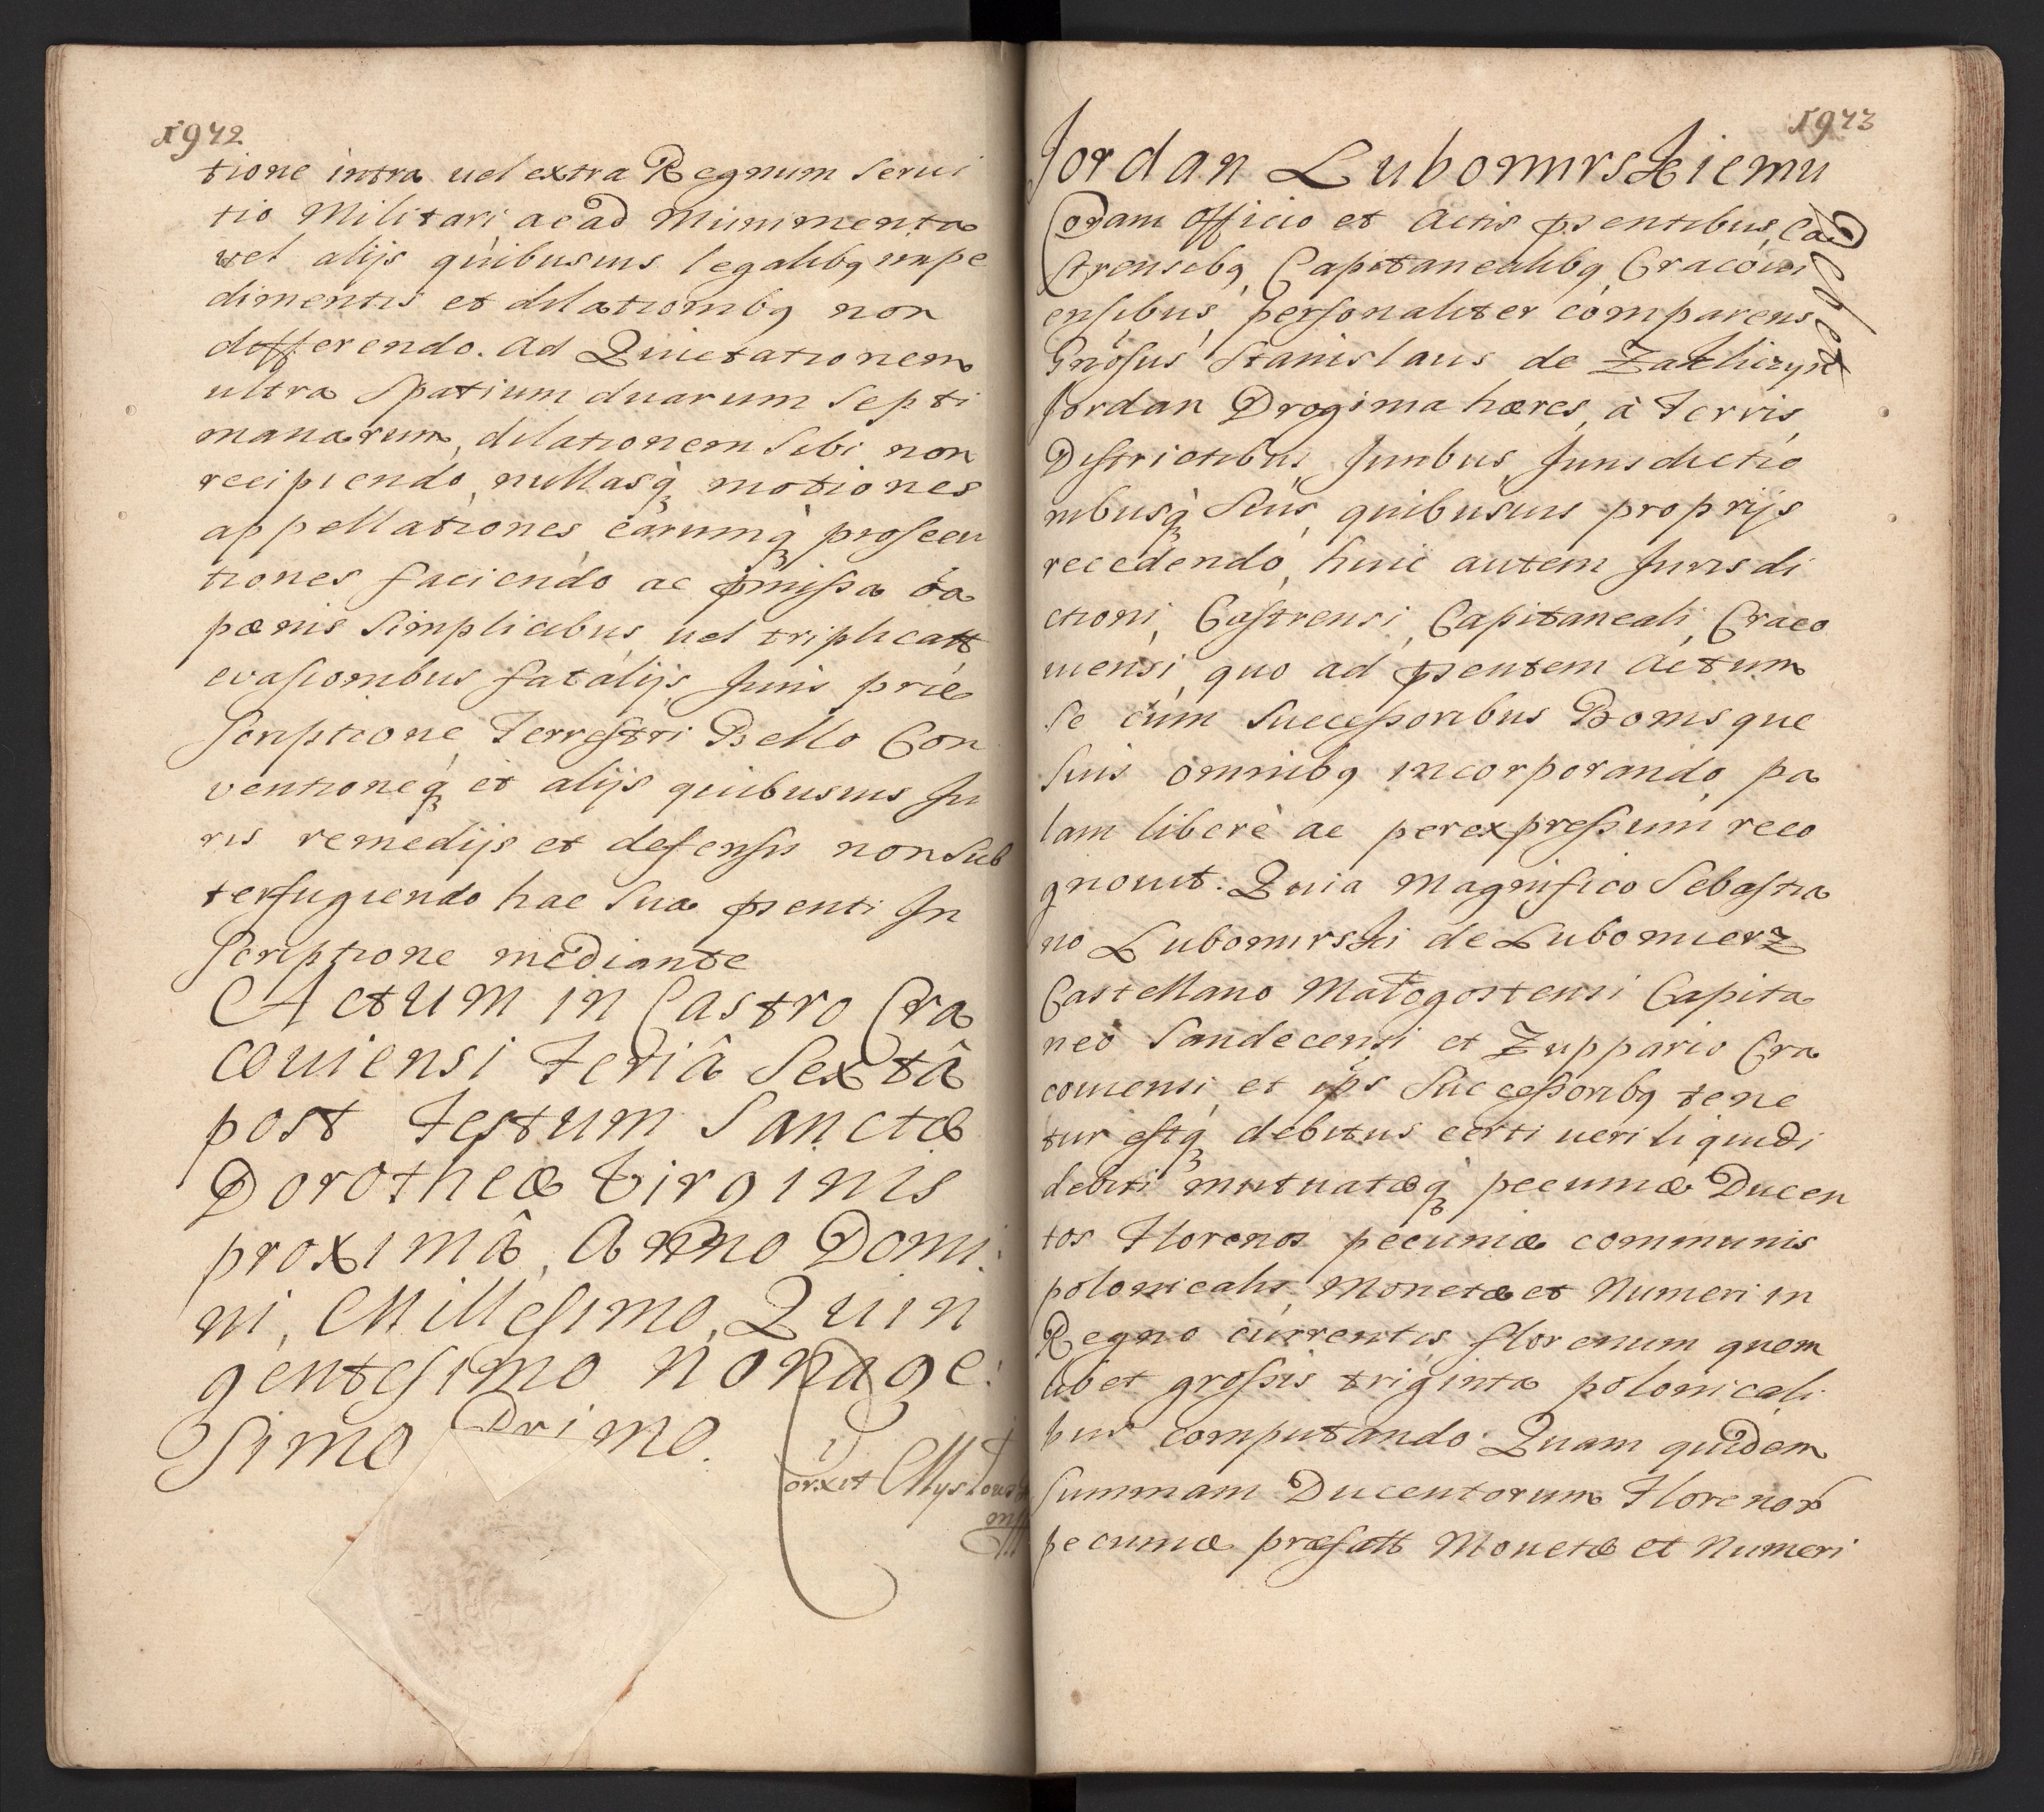 1942
tione intra uel extra Regnum Serui
tio Militari ac ad Munimenta
vel alijs quibusuis legalibq impe
dimentis et dilationibq non
differendo. Ad Quietationem
ultra Spatium duarum Septi
manarum, dilationem Sibi non
recipiendo, nullasq motiones
appellationes earumq prosecu
tiones faciendo ac pmissa
pœnis Simplicibus uel triplicatt
evasionibus fatalijs Juris præ
scriptione Terrestri Bello Con
ventioneq et alijs quibusuis Ju
ris remedijs et defensis non Sub
terfugiendo hac Sua psenti In
scriptione mediante
Actum in Castro Cra
couiensi Feriâ Sextâ
post Festum Sanctæ
Dorotheæ Virginis
proximâ, Anno Domi:
ni, Millesimo, Quin
gentesimo nonage:
simo Primo.
1943
Jordan Lubomirskiemu
Coram Officio et Actis psentibus, Ca
strensibq, Capitanealibq, Cracoui
ensibus, personaliter comparens
Gnosus Stanislaus de Zakliczyn
debet
Jordan Drogima hæres, à Terris,
Districtibus, Juribus, Jurisdictio
nibusq Suis, quibusuis proprijs
recedendo, huic autem Jurisdi
ctioni, Castrensi, Capitaneali, Craco
uiensi, quo ad psentem Actum
Se cum Successoribus Bonisque
Suis omnibq incorporando, pa
lam liberè ac per expressum reco
gnouit. Quia Magnifico Sebastia
no Lubomirski de Lubomierz
Castellano Małogostensi Capita
neo Sandecensi et Zuppario Cra
couiensi et ips Successoribq tene
tur estq debitus certi ueri liquidi
debiti mutuatæq pecuniæ Ducen
tos Florenos pecuniæ communis
polonicalis, Monetæ et Numeri in
Regno currentis florenum quem
libet grossis triginta polonicali
bus computando. Quam quidem
Summam Ducentorum Florenor
pecuniæ præfatt Monetæ et Numeri